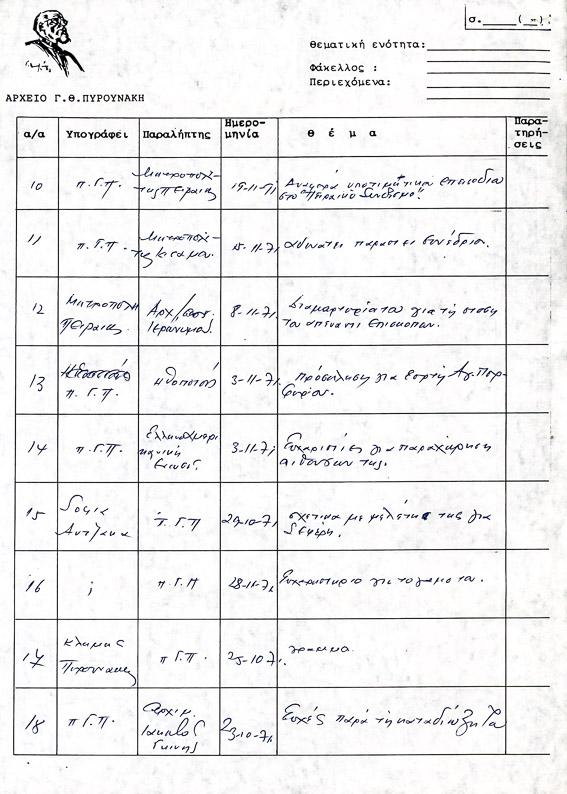 σ. ( - ).
Θεματική ενότητα:
Φάκελλος :
Περιεχόμενα:
ΑΡΧΕΙΟ Γ.Θ.ΠΥΡΟΥΝΑΚΗ
α/α Υπογράφει Παραλήπτης Ημερο-μηνία θ έ μ α Παρα-τηρή-σεις
10 π.Γ.Π. Μητροπολί-της Πειραιώς 19-11-71 Αναφορά υποτιμητικά επεισόδια
στο "Πειραϊκό Σύνδεσμο".
11 π.Γ.Π. 15-11-71 αδυνατεί παραστεί συνέδριον.
12 Μητροπολί Πειραιώς Αρχ/σκοπ. Ιερώνυμος 8-11-71. Διαμαρτυρία του για τη στάση
του απέναντι Επισκόπων.
13 π. Γ.Π. Ηθοποιοί 3-11-71 Πρόσκληση για Εορτή Αγ. Πορ-
φυρίου.
14 π.Γ.Π. Ελληνοαμερι κανική Ένωσις 3-11-71 Ευχαριστίες για παραχώρηση
αιθουσών της.
15 Σοφία Αντζακα π.Γ.Π -10-71 σχετικά με μελέτη της για
Σεφέρη.
16 ; π.Γ.Π 28-11-71 Ευχαριστήριο για το γάμο του.
17 Πυρουνάκης π Γ.Π. 25-10-71. γράμμα.
18 π Γ.Π. Αρχιμ. Ιάκωβος Γκίνης 23-10-71 Ευχές παρά τη